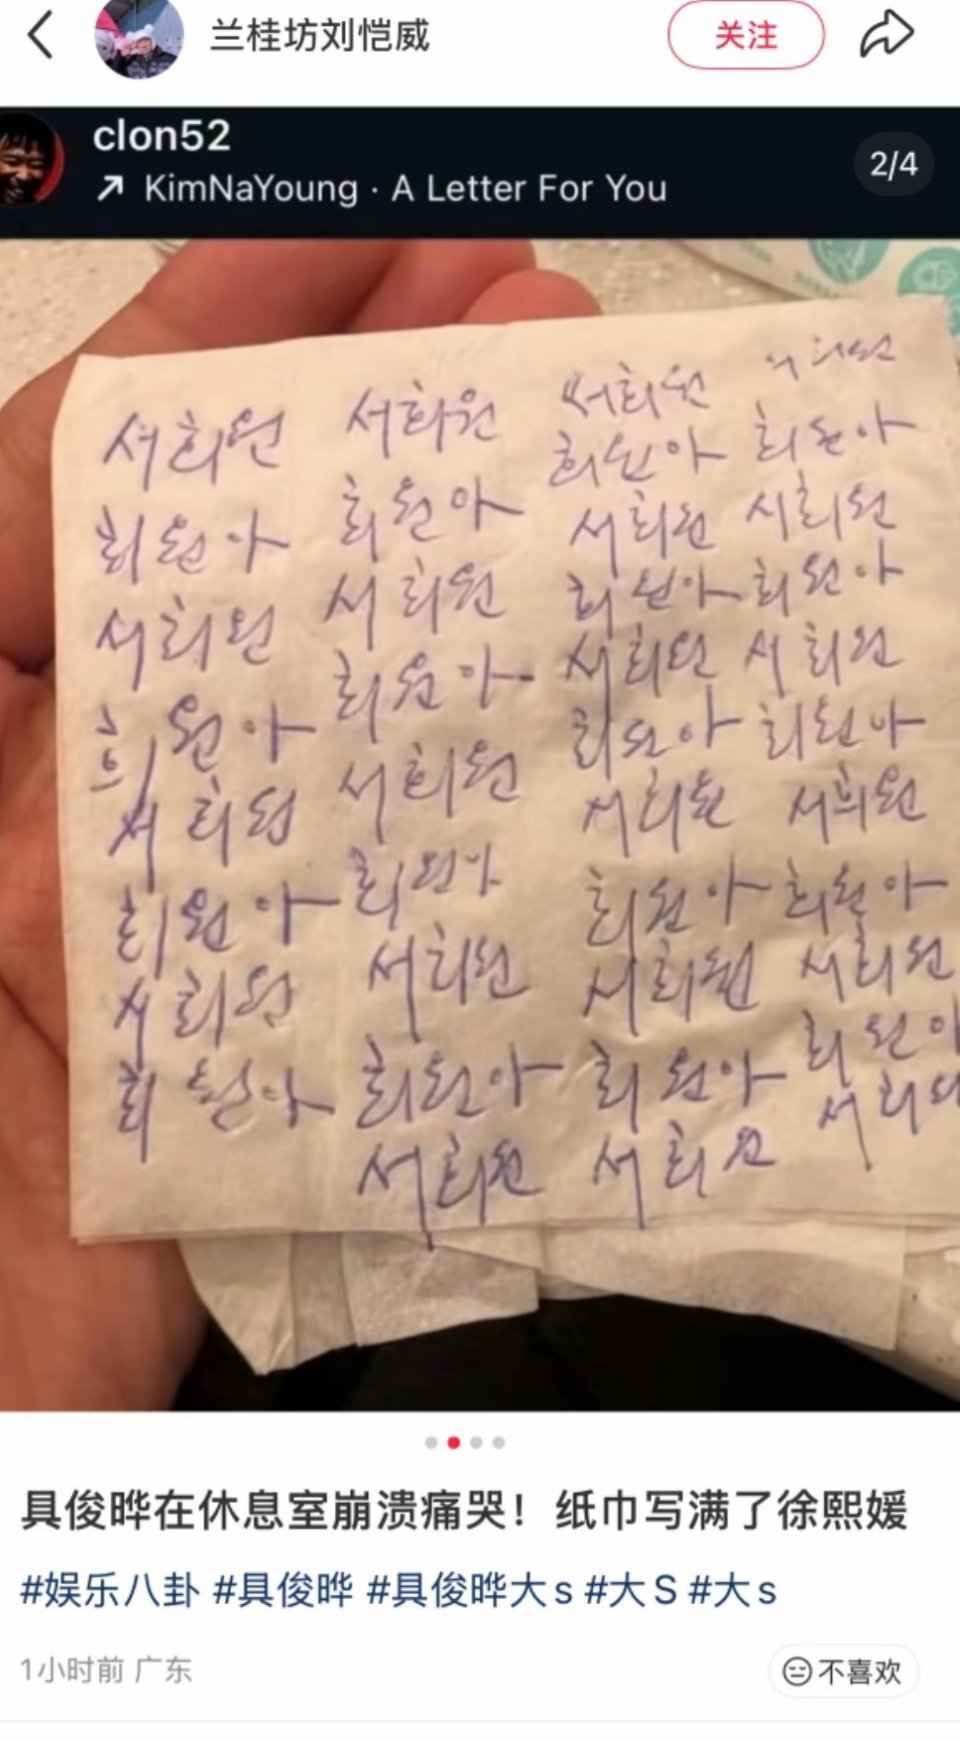 兰桂坊刘恺威
关注
clon52
2/4
KimNaYoung · A Letter For You
서희원 서희원 서희원 서희원
희원아 희원아 희원아 희원아
서희원 서희원 서희원 서희원
희원아 희원아 희원아 희원아
서희원 서희원 서희원 서희원
희원아 희원아 희원아 희원아
서희원 서희원 서희원 서희원
희원아 희원아 희원아 희원아
서희원 서희원 서희원
희원아
서희
具俊晔在休息室崩溃痛哭！纸巾写满了徐熙媛
#娱乐八卦 #具俊晔 #具俊晔大s #大S #大s
1小时前 广东
不喜欢